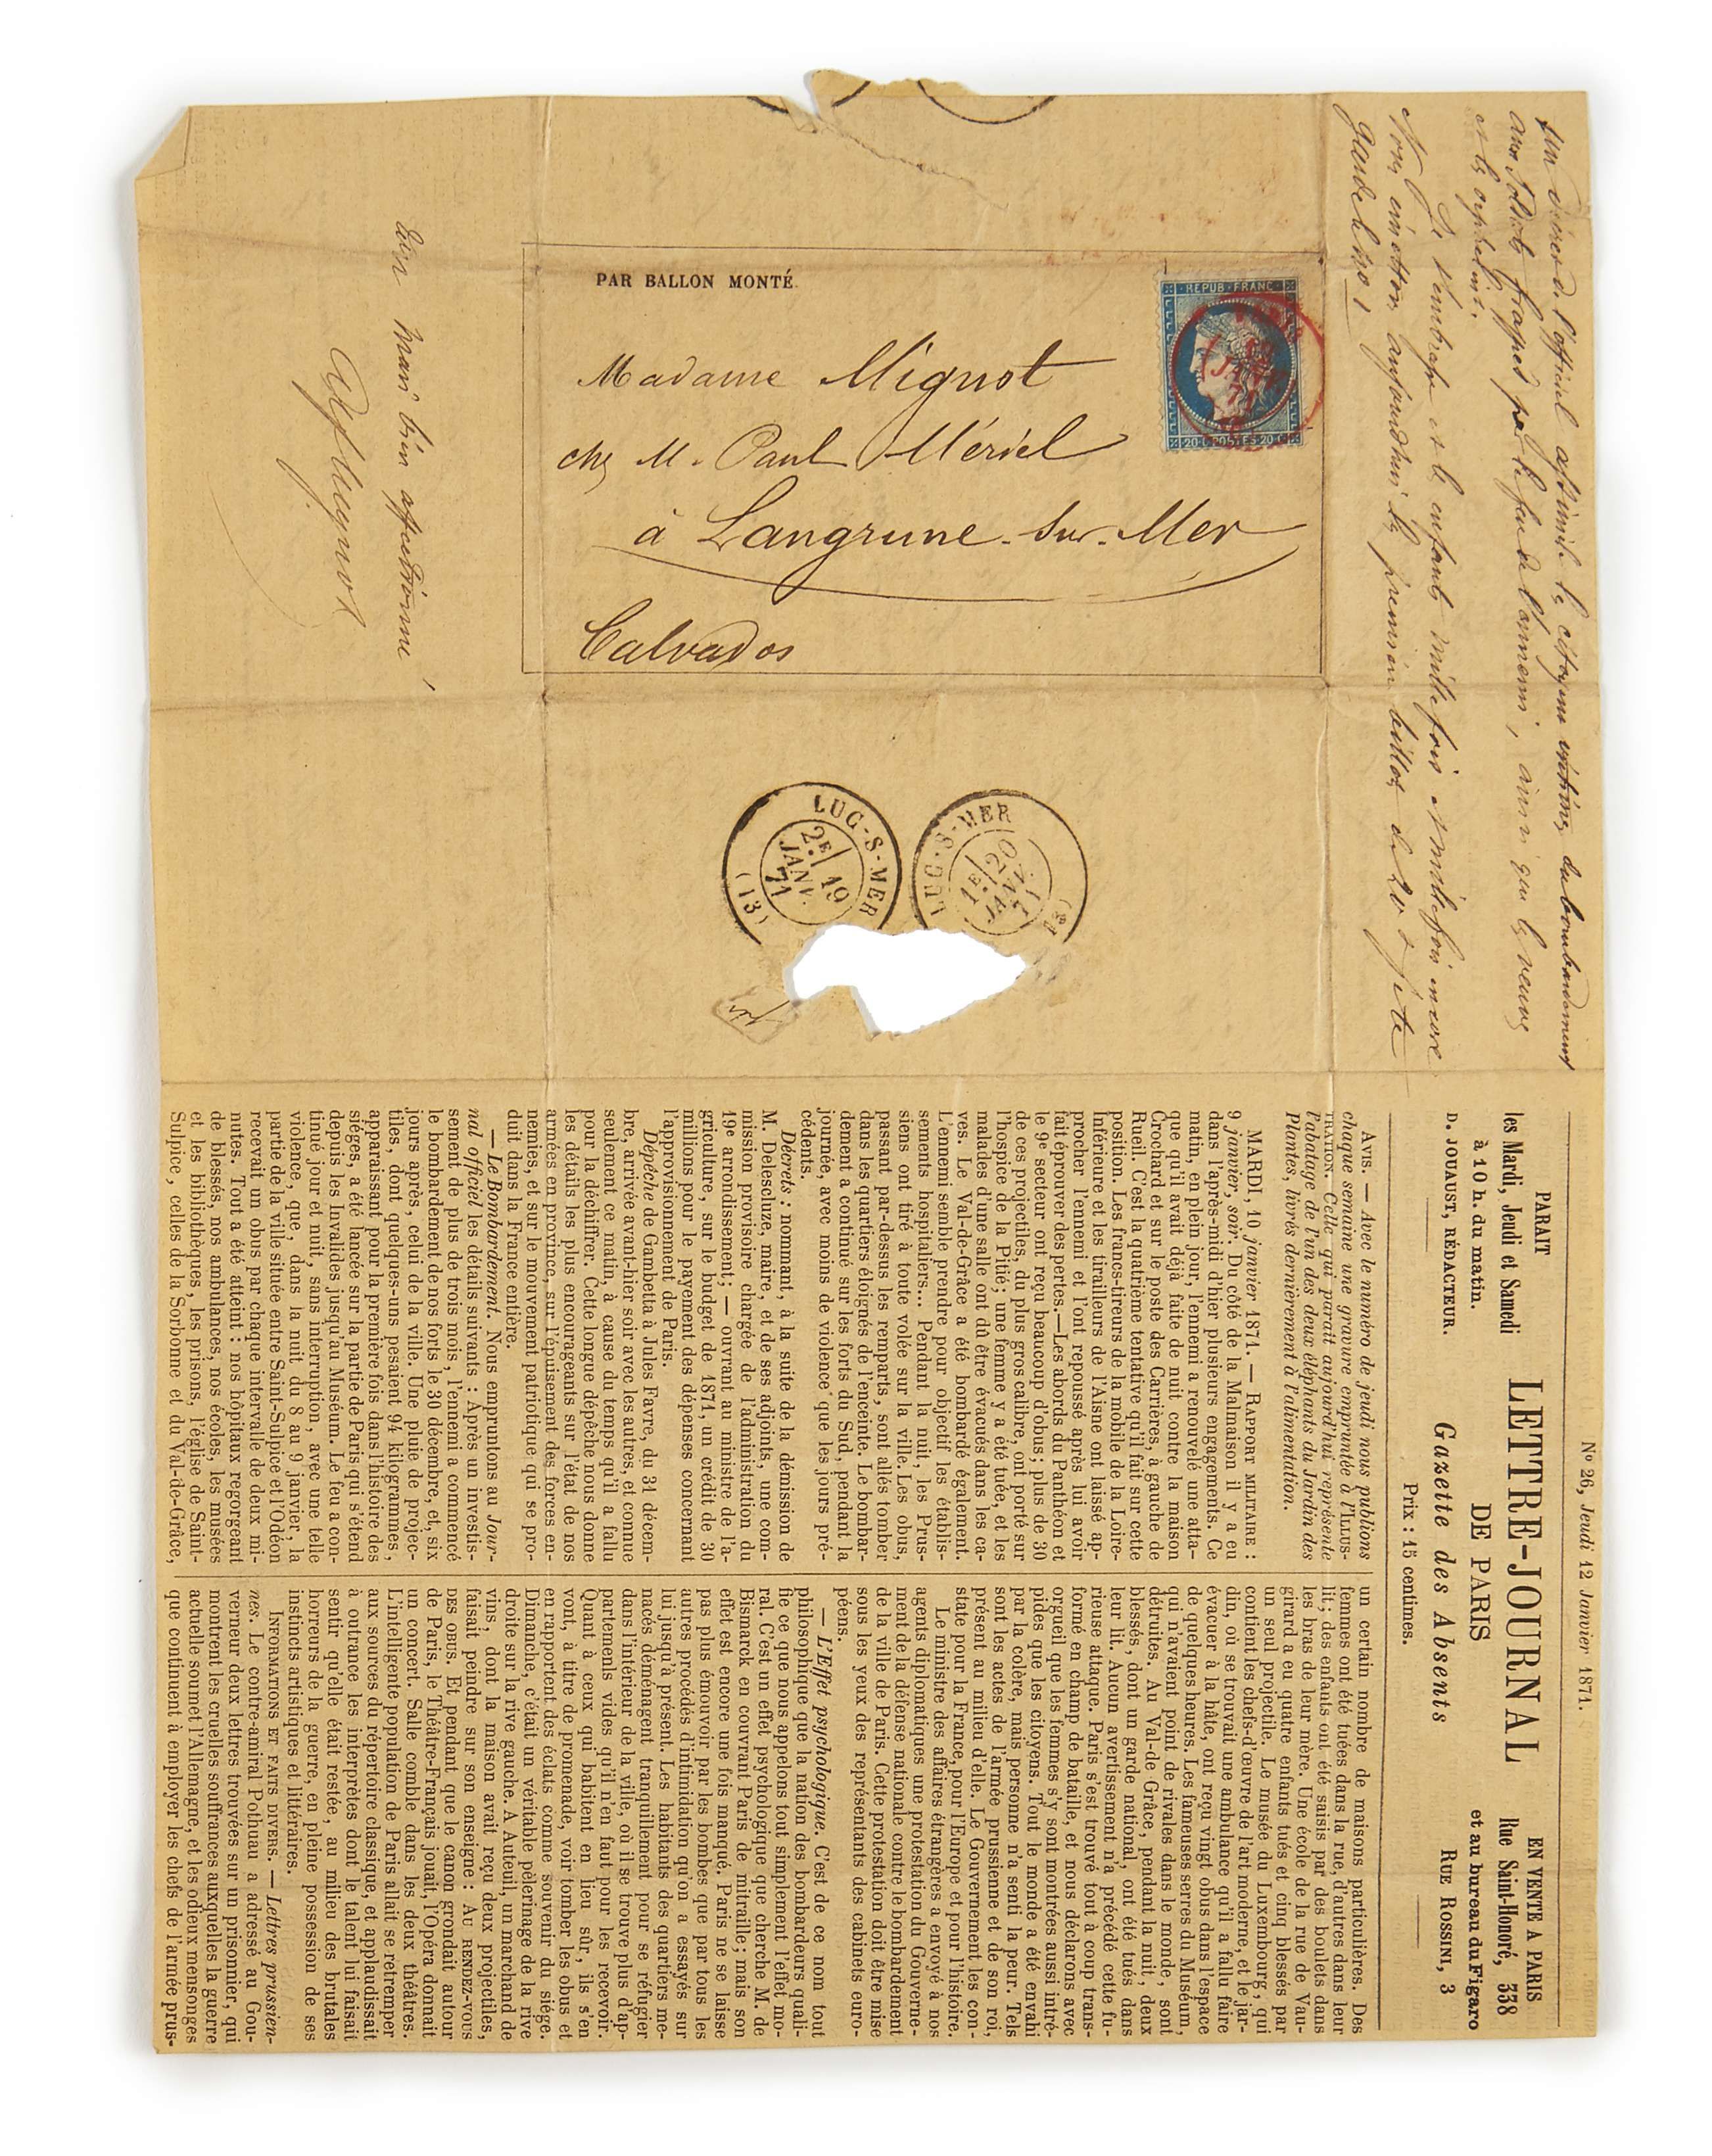 PAR BALLON MONTÉ
Madame Mignot
chez M. Paul Mériel
à Langrune-Sur-Mer
Calvados
REPUB·FRANC
20·C·POSTES·20·C
JANV
71
LUC-S-MER
2E 19
JANV.
71
(13)
LUC-S-MER
un décret de l'officiel assimile les citoyens victimes du bombardement
aux soldats frappés par le feu de l'ennemi, ainsi que les veuves
et les orphelins.
Je t'embrasse et les enfants mille fois et mille fois encore
Nous émettons aujourd'hui les premiers billets de 20 f je te
ton mari bien affectionné
Mignot
No 26, Jeudi 12 Janvier 1871.
PARAIT
les Mardi, Jeudi et Samedi
à 10 h. du matin.
D. JOUAUST, RÉDACTEUR.
LETTRE-JOURNAL
DE PARIS
Gazette des Absents
Prix : 15 centimes.
EN VENTE A PARIS
Rue Saint-Honoré, 338
et au bureau du Figaro
RUE ROSSINI, 3
AVIS. — Avec le numéro de jeudi nous publions
chaque semaine une gravure empruntée à l'ILLUS-
TRATION. Celle qui paraît aujourd'hui représente
l'abatage de l'un des deux éléphants du Jardin des
Plantes, livrés dernièrement à l'alimentation.
MARDI, 10 janvier 1871. — RAPPORT MILITAIRE :
9 janvier, soir. Du côté de la Malmaison il y a eu
dans l'après-midi d'hier plusieurs engagements. Ce
matin, en plein jour, l'ennemi a renouvelé une atta-
que qu'il avait déjà faite de nuit contre la maison
Crochard et sur le poste des Carrières, à gauche de
Rueil. C'est la quatrième tentative qu'il fait sur cette
position. Les francs-tireurs de la mobile de la Loire-
Inférieure et les tirailleurs de l'Aisne ont laissé ap-
procher l'ennemi et l'ont repoussé après lui avoir
fait éprouver des pertes.—Les abords du Panthéon et
le 9e secteur ont reçu beaucoup d'obus; plus de 30
de ces projectiles, du plus gros calibre, ont porté sur
l'hospice de la Pitié; une femme y a été tuée, et les
malades d'une salle ont dû être évacués dans les ca-
ves. Le Val-de-Grâce a été bombardé également.
L'ennemi semble prendre pour objectif les établis-
sements hospitaliers... Pendant la nuit, les Prus-
siens ont tiré à toute volée sur la ville. Les obus,
passant par-dessus les remparts, sont allés tomber
dans les quartiers éloignés de l'enceinte. Le bombar-
dement a continué sur les forts du Sud, pendant la
journée, avec moins de violence que les jours pré-
cédents.
Décrets : nommant, à la suite de la démission de
M. Delescluze, maire, et de ses adjoints, une com-
mission provisoire chargée de l'administration du
19e arrondissement; — ouvrant au ministre de l'a-
griculture, sur le budget de 1871, un crédit de 30
millions pour le payement des dépenses concernant
l'approvisionnement de Paris.
Dépêche de Gambetta à Jules Favre, du 31 décem-
bre, arrivée avant-hier soir avec les autres, et connue
seulement ce matin, à cause du temps qu'il a fallu
pour la déchiffrer. Cette longue dépêche nous donne
les détails les plus encourageants sur l'état de nos
armées en province, sur l'épuisement des forces en-
nemies, et sur le mouvement patriotique qui se pro-
duit dans la France entière.
— Le Bombardement. Nous empruntons au Jour-
nal officiel les détails suivants : Après un investis-
sement de plus de trois mois, l'ennemi a commencé
le bombardement de nos forts le 30 décembre, et, six
jours après, celui de la ville. Une pluie de projec-
tiles, dont quelques-uns pesaient 94 kilogrammes,
apparaissant pour la première fois dans l'histoire des
siéges, a été lancée sur la partie de Paris qui s'étend
depuis les Invalides jusqu'au Muséum. Le feu a con-
tinué jour et nuit, sans interruption, avec une telle
violence, que, dans la nuit du 8 au 9 janvier, la
partie de la ville située entre Saint-Sulpice et l'Odéon
recevait un obus par chaque intervalle de deux mi-
nutes. Tout a été atteint : nos hôpitaux regorgeant
de blessés, nos ambulances, nos écoles, les musées
et les bibliothèques, les prisons, l'église de Saint-
Sulpice, celles de la Sorbonne et du Val-de-Grâce,
un certain nombre de maisons particulières. Des
femmes ont été tuées dans la rue, d'autres dans leur
lit; des enfants ont été saisis par des boulets dans
les bras de leur mère. Une école de la rue de Vau-
girard a eu quatre enfants tués et cinq blessés par
un seul projectile. Le musée du Luxembourg, qui
contient les chefs-d'œuvre de l'art moderne, et le jar-
din, où se trouvait une ambulance qu'il a fallu faire
évacuer à la hâte, ont reçu vingt obus dans l'espace
de quelques heures. Les fameuses serres du Muséum,
qui n'avaient point de rivales dans le monde, sont
détruites. Au Val-de Grâce, pendant la nuit, deux
blessés, dont un garde national, ont été tués dans
leur lit. Aucun avertissement n'a précédé cette fu-
rieuse attaque. Paris s'est trouvé tout à coup trans-
formé en champ de bataille, et nous déclarons avec
orgueil que les femmes s'y sont montrées aussi intré-
pides que les citoyens. Tout le monde a été envahi
par la colère, mais personne n'a senti la peur. Tels
sont les actes de l'armée prussienne et de son roi,
présent au milieu d'elle. Le Gouvernement les con-
state pour la France, pour l'Europe et pour l'histoire.
Le ministre des affaires étrangères a envoyé à nos
agents diplomatiques une protestation du Gouverne-
ment de la défense nationale contre le bombardement
de la ville de Paris. Cette protestation doit être mise
sous les yeux des représentants des cabinets euro-
péens.
— L'Effet psychologique. C'est de ce nom tout
philosophique que la nation des bombardeurs quali-
fie ce que nous appelons tout simplement l'effet mo-
ral. C'est un effet psychologique que cherche M. de
Bismarck en couvrant Paris de mitraille; mais son
effet est encore une fois manqué. Paris ne se laisse
pas plus émouvoir par les bombes que par tous les
autres procédés d'intimidation qu'on a essayés sur
lui jusqu'à présent. Les habitants des quartiers me-
nacés déménagent tranquillement pour se réfugier
dans l'intérieur de la ville, où il se trouve plus d'ap-
partements vides qu'il n'en faut pour les recevoir.
Quant à ceux qui habitent en lieu sûr, ils s'en
vont, à titre de promenade, voir tomber les obus et
en rapportent des éclats comme souvenir du siége.
Dimanche, c'était un véritable pèlerinage de la rive
droite sur la rive gauche. A Auteuil, un marchand de
vins, dont la maison avait reçu deux projectiles,
faisait peindre sur son enseigne : AU RENDEZ-VOUS
DES OBUS. Et pendant que le canon grondait autour
de Paris, le Théâtre-Français jouait, l'Opéra donnait
un concert. Salle comble dans les deux théâtres.
L'intelligente population de Paris allait se retremper
aux sources du répertoire classique, et applaudissait
à outrance les interprètes dont le talent lui faisait
sentir qu'elle était restée, au milieu des brutales
horreurs de la guerre, en pleine possession de ses
instincts artistiques et littéraires.
INFORMATIONS ET FAITS DIVERS. — Lettres prussien-
nes. Le contre-amiral Pothuau a adressé au Gou-
verneur deux lettres trouvées sur un prisonnier, qui
montrent les cruelles souffrances auxquelles la guerre
actuelle soumet l'Allemagne, et les odieux mensonges
que continuent à employer les chefs de l'armée prus-